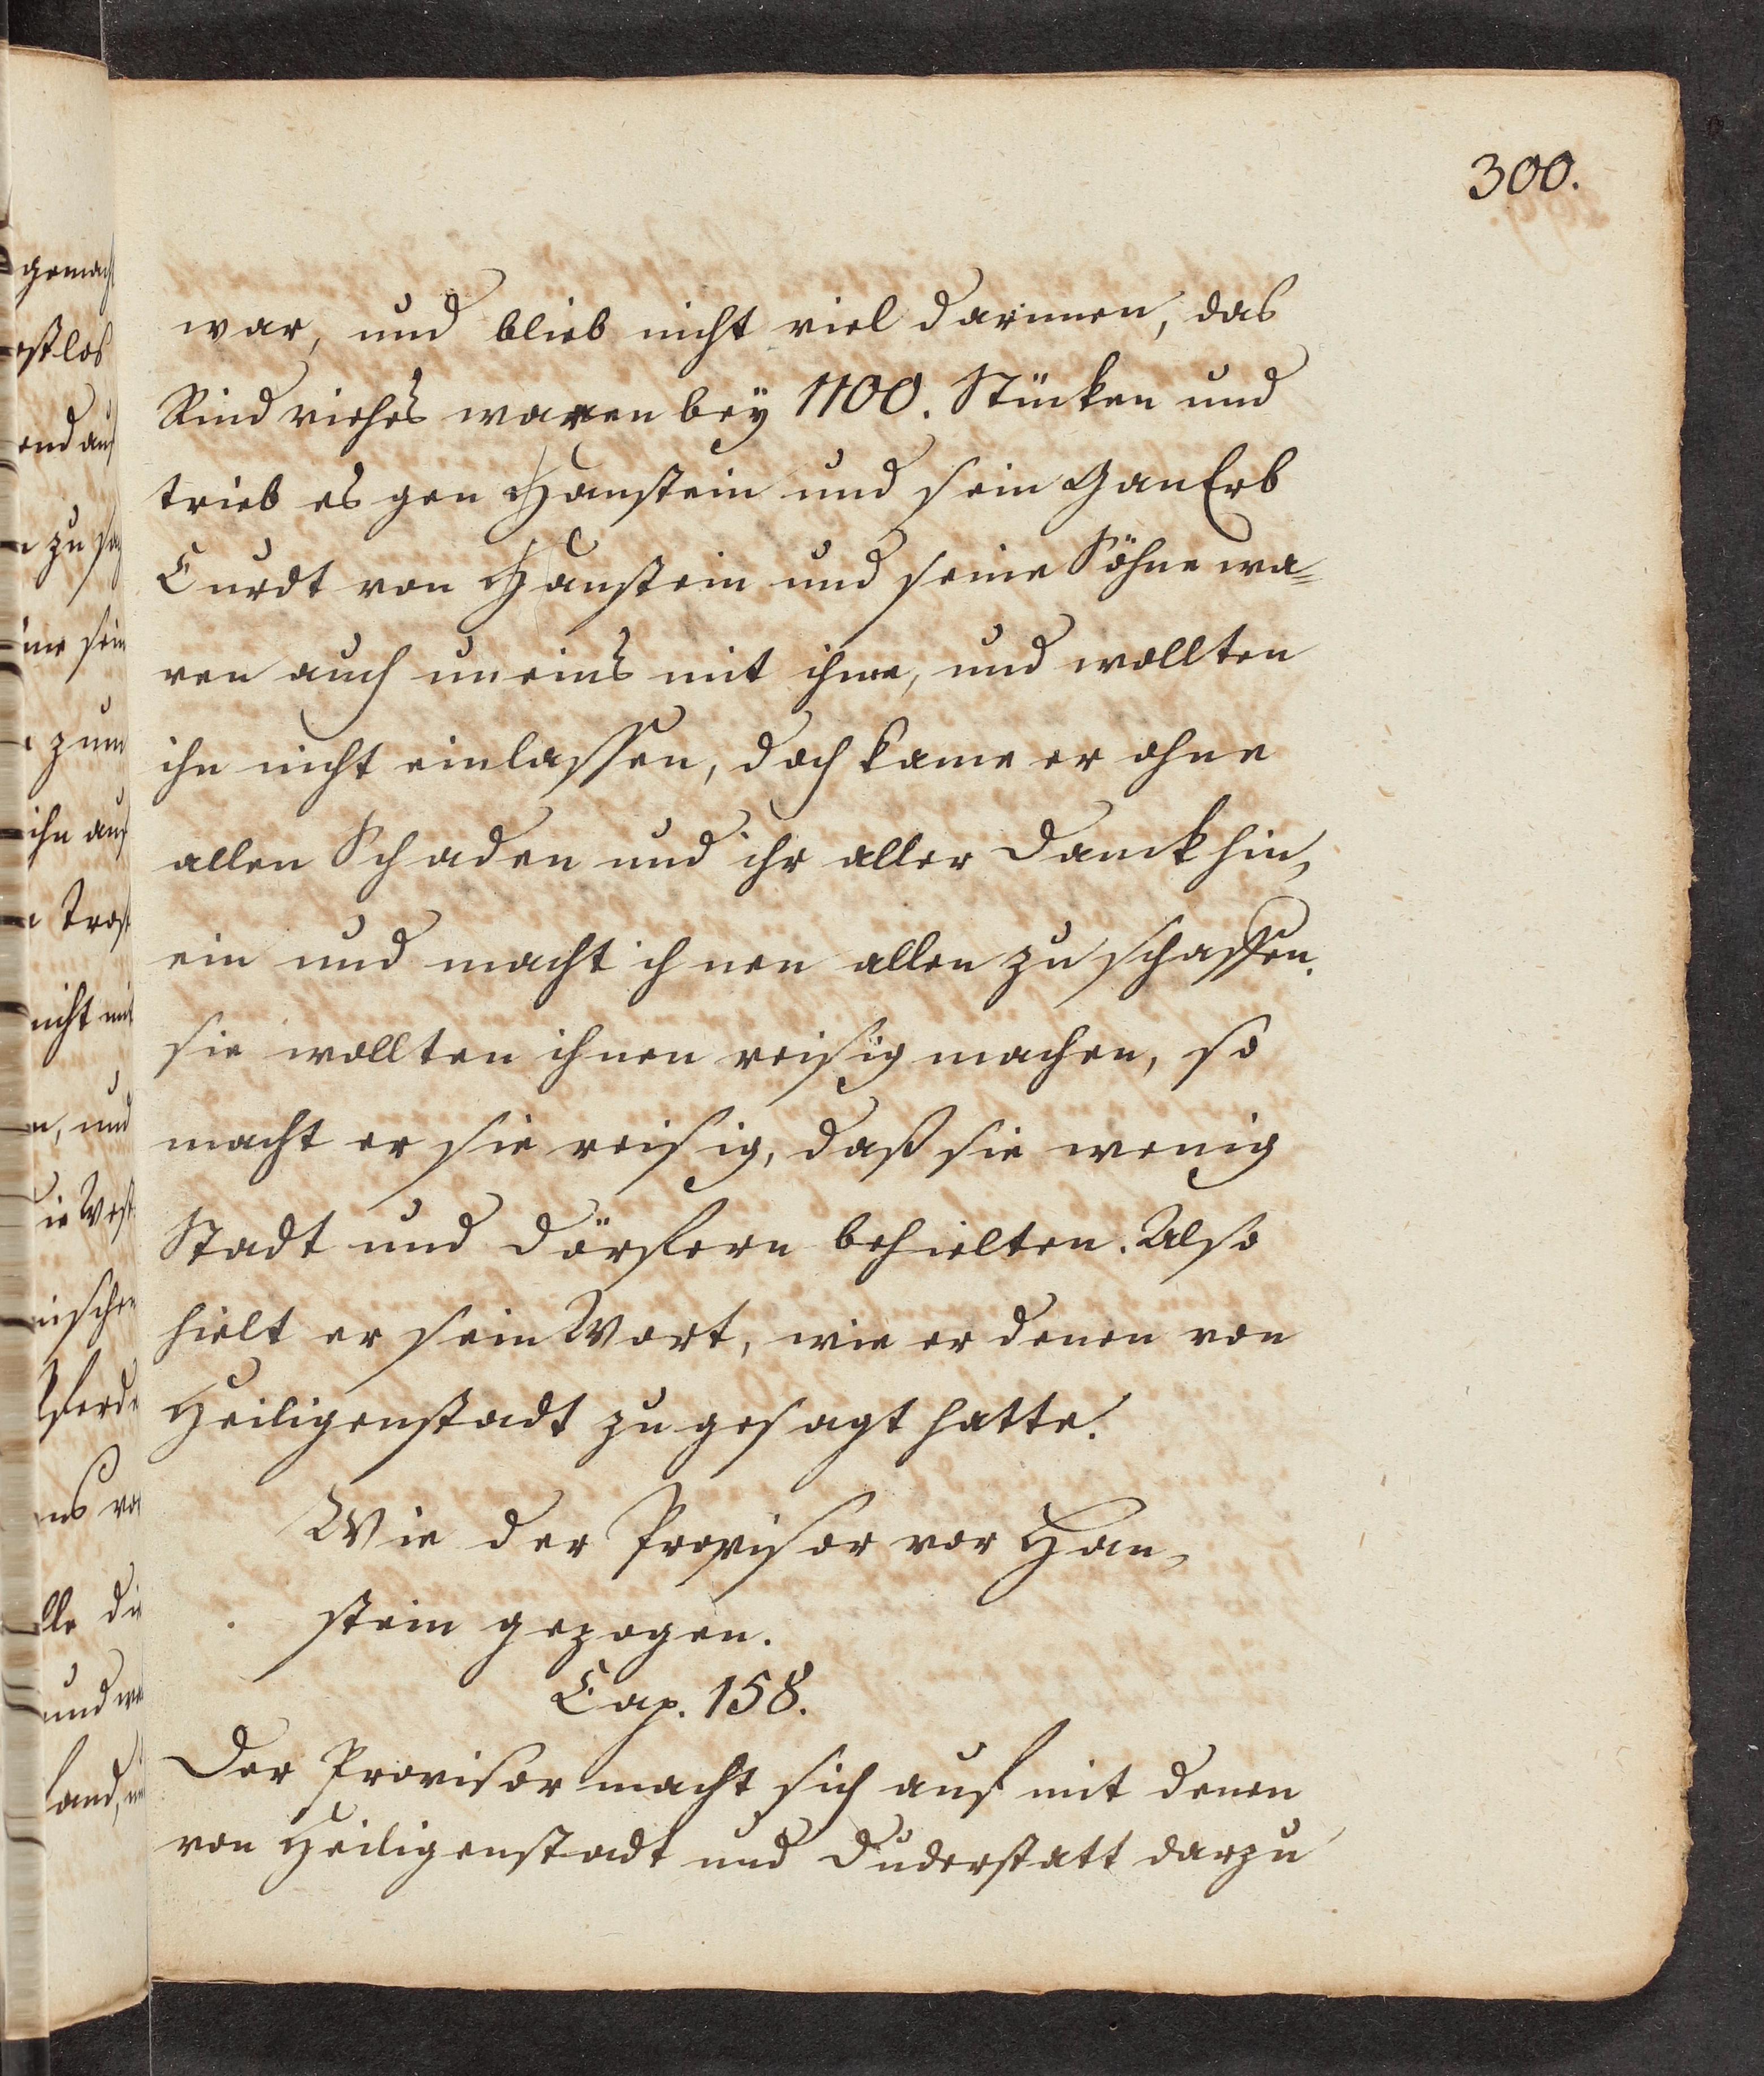 300.
war, und blieb nicht viel darinnen, das
Rind viehes waren bey 1100. Stücken und
trieb es gen Hanstein und sein GanErb
Curdt von Hanstein und seine Söhne wa=
ren auch uneins mit ihme, und wollten
ihn nicht einlassen, doch kame er ohne
allen Schaden und ihr aller Danck hin,
ein und macht ihnen allen zu schaffen.
sie wollten ihnen reisig machen, so
macht er sie reisig, daß sie wenig
Stadt und Dörffern behielten. Also
hielt er sein Wort, wie er denen von
Heiligenstadt zu gesagt hatte.
Wie der Provisor vor Han,
stein gezogen.
Cap. 158.
Der Provisor macht sich auf mit denen
von Heiligenstadt und Duderstatt darzu